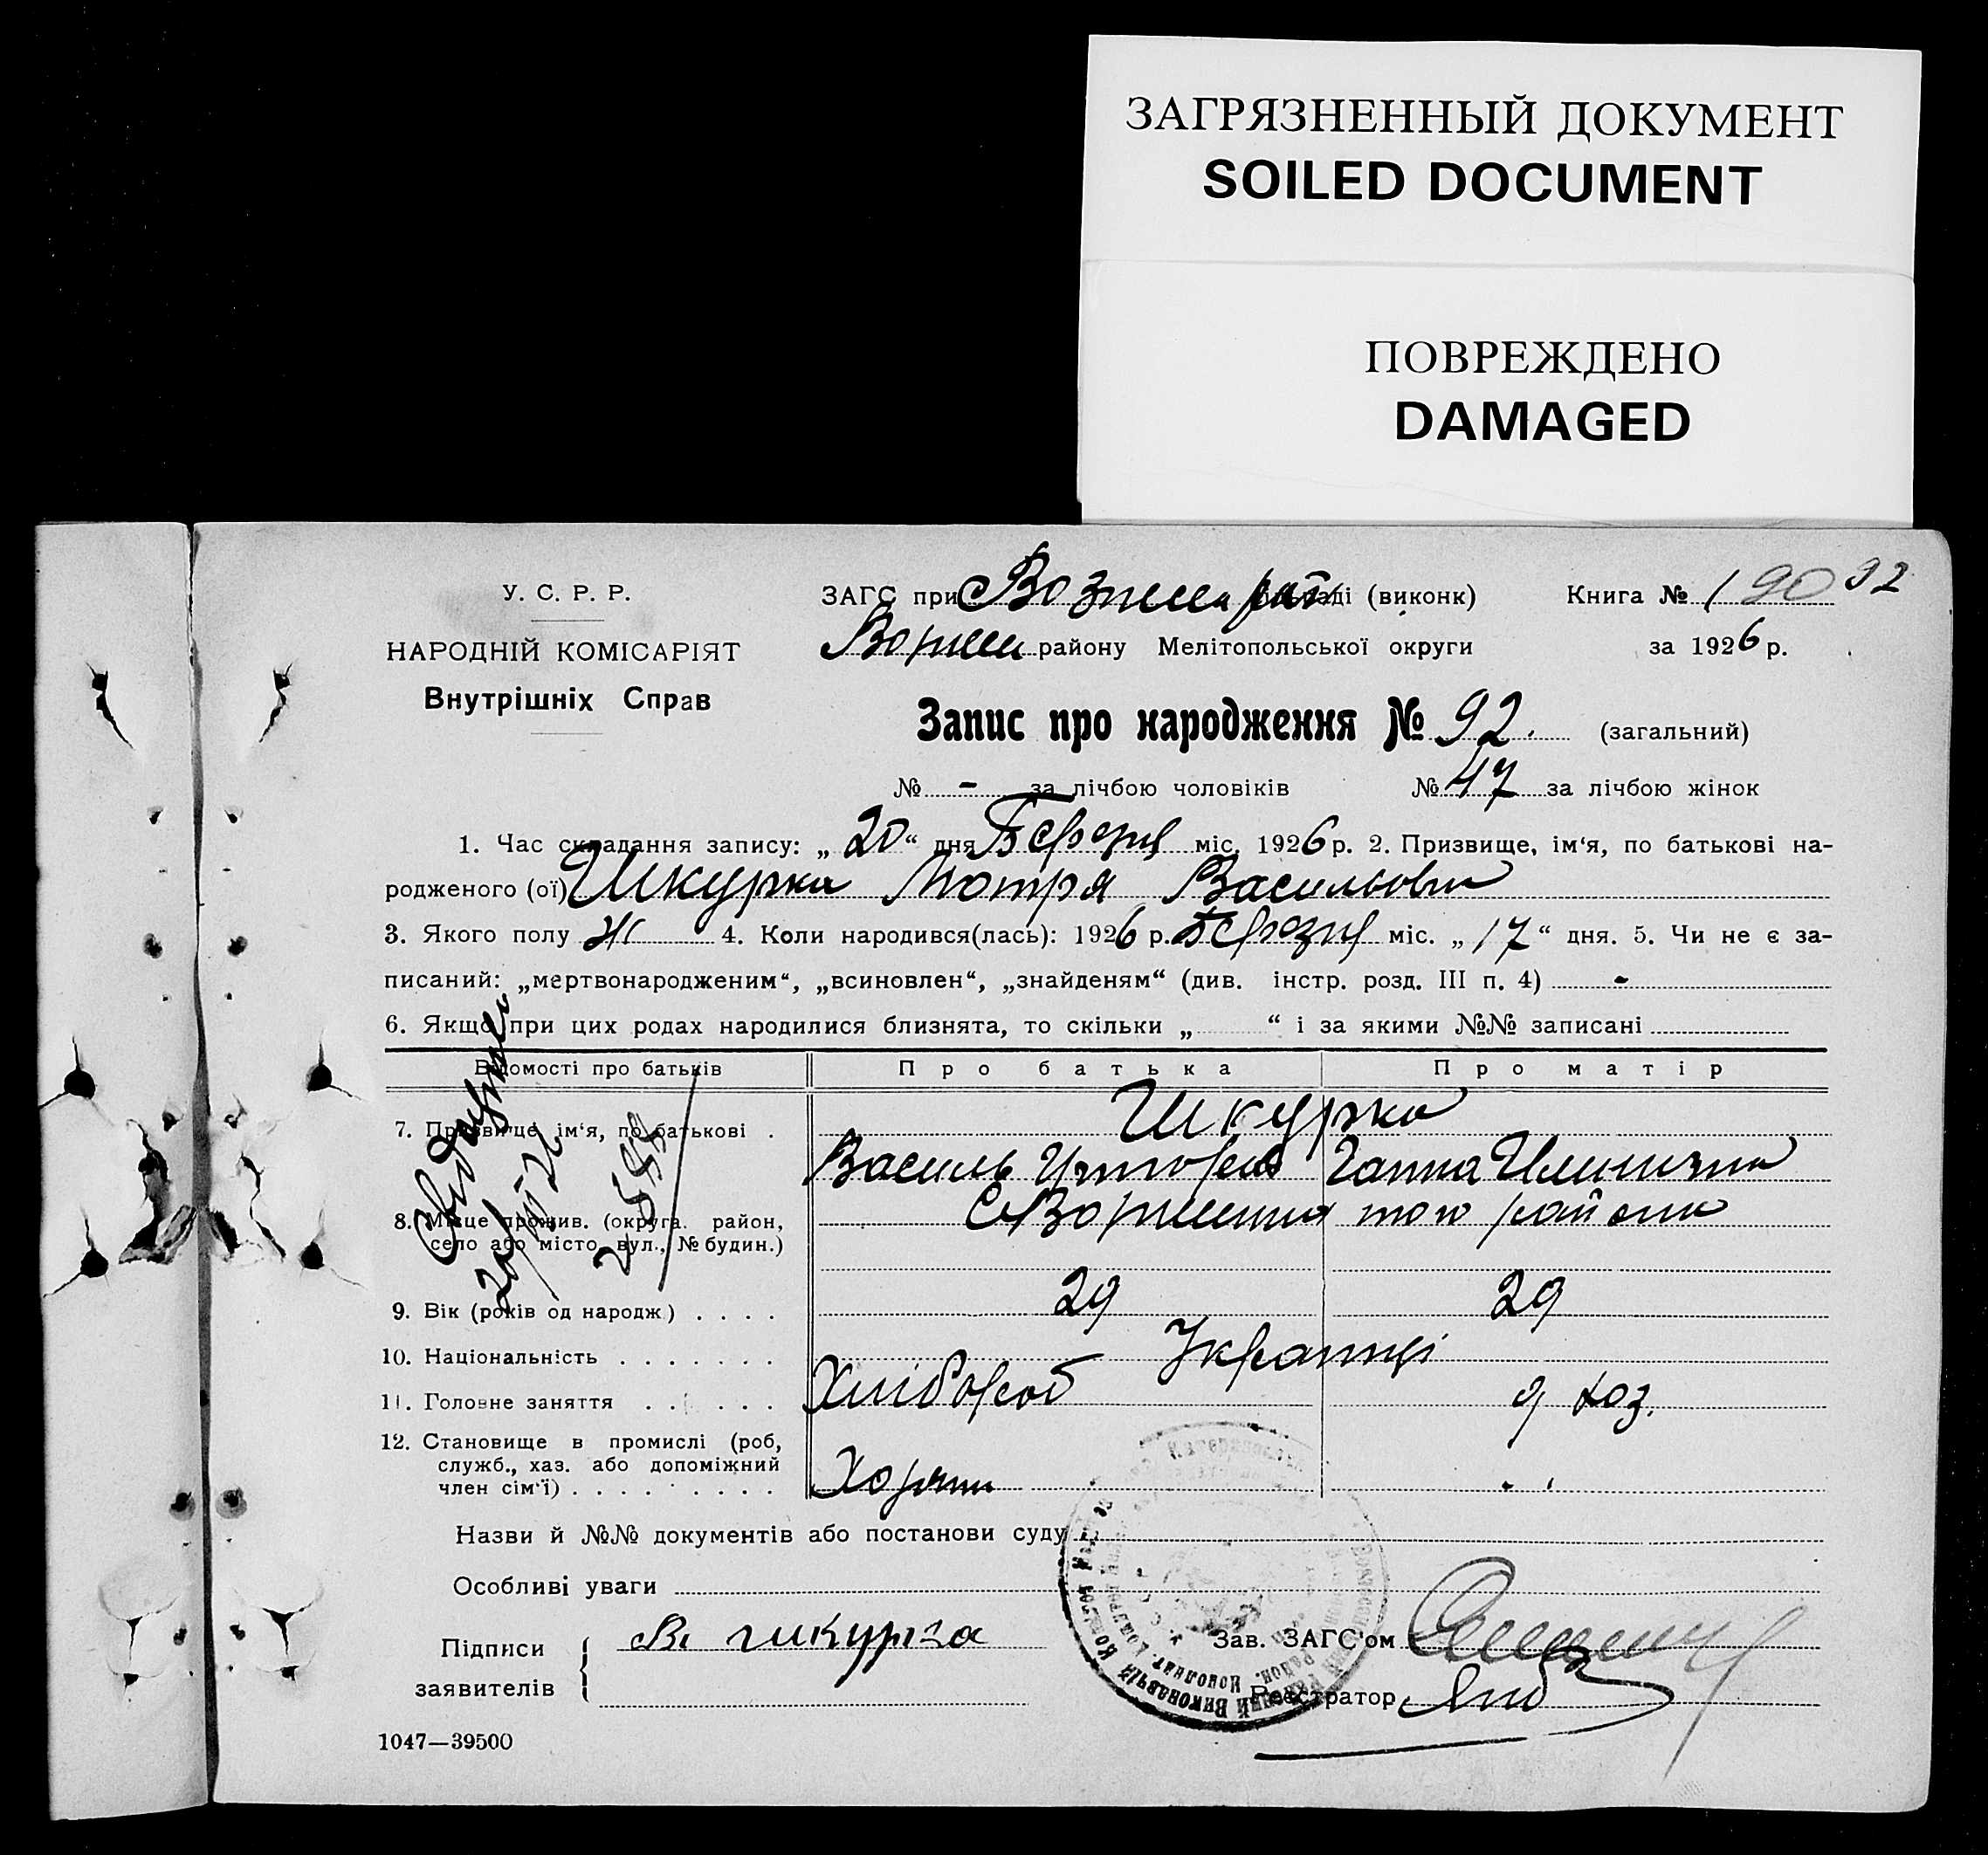 ЗАГРЯЗНЕННЫЙ ДОКУМЕНТ
SOILED DOCUMENT
ПОВРЕЖДЕНО
DAMAGED
У. С. Р. Р.
НАРОДНІЙ КОМІСАРІЯТ
Внутрішніх Справ
ЗАГС при (виконк) Книга № 1 90 92
району Мелітопольської округи за 1926 р.
Запис про народження № 92. (загальний)
№ - за лічбою чоловіків № 47 за лічбою жінок
1. Час складання запису: „20“ дня Березня міс. 1926 р. 2. Призвище, ім‘я, по батькові на-
родженого (ої) Шкурка Мотря Васильовна
3. Якого полу Ж 4. Коли народився(лась): 1926 р. Березня міс. „17“ дня. 5. Чи не є за-
писаний: „мертвонародженим“, „всиновлен“, „знайденям“ (див. інстр. розд. III п. 4) -
6. Якщо при цих родах народилися близнята, то скільки „ “ і за якими №№ записані
Відомості про батьків Про батька Про матір
7. Призвище, ім‘я, по батькові . Шкурка
Василь Ганна
8. Місце прожив. (округа район, того району
село або місто, вул., № будин.)
9. Вік (років од народж.) . . . . 29 29
10. Національність . . . . . . . Українці
11. Головне заняття . . . . . . Хлібороб д хоз.
12. Становище в промислі (роб,
служб., хаз. або допоміжний
член сім‘ї) . . . . . . . . .
Назви й №№ документів або постанови суду
Особливі уваги
Підписи В. шкурка Зав. ЗАГС‘ом
заявителів Реєстратор
1047—39500